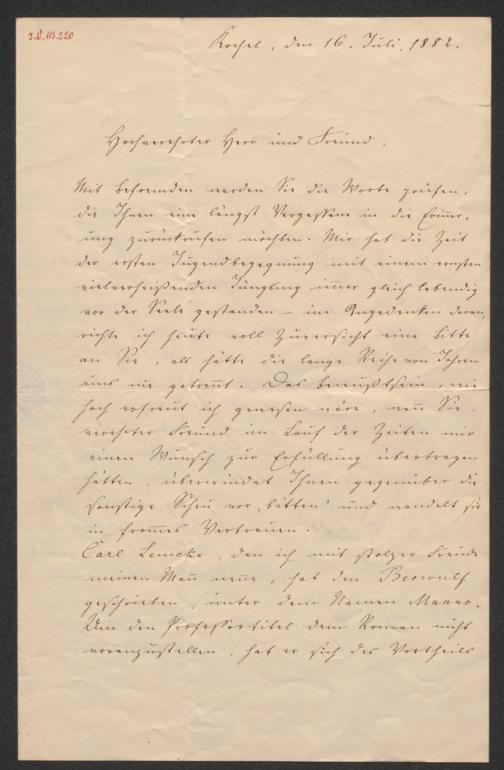 I.N. 113.220
Kochel, den 16. Juli. 1882.
Hochverehrter Herr und Freund.
Mit Befremden werden Sie die Worte prüfen,
die Ihnen eine längst Vergessene in die Erinner-
ung zurückrufen möchten. Mir hat die Zeit
der ersten Jugendbegegnung mit einem ernsten
vielverheißenden Jüngling immer gleich lebendig
vor der Seele gestanden – im Angedenken deren,
richte ich heute voll Zuversicht eine Bitte
an Sie, als hätte die lange Reihe von Jahren
uns nie getrennt. Das Bewußtsein, wie
hoch erfreut ich gewesen wäre, wenn Sie,
verehrter Freund im Lauf der Zeiten mir
einen Wunsch zur Erfüllung übertragen
hätten, überwindet Ihnen gegenüber die
sonstige Scheu vor „bitten" und wandelt sie
in frommes Vertrauen.
Carl Lemcke, den ich mit stolzer Freude
meinen Mann nenne, hat den Beowulf
geschrieben, unter dem Namen Manno.
Um den Professortitel dem Roman nicht
voranzustellen, hat er sich des Vortheils